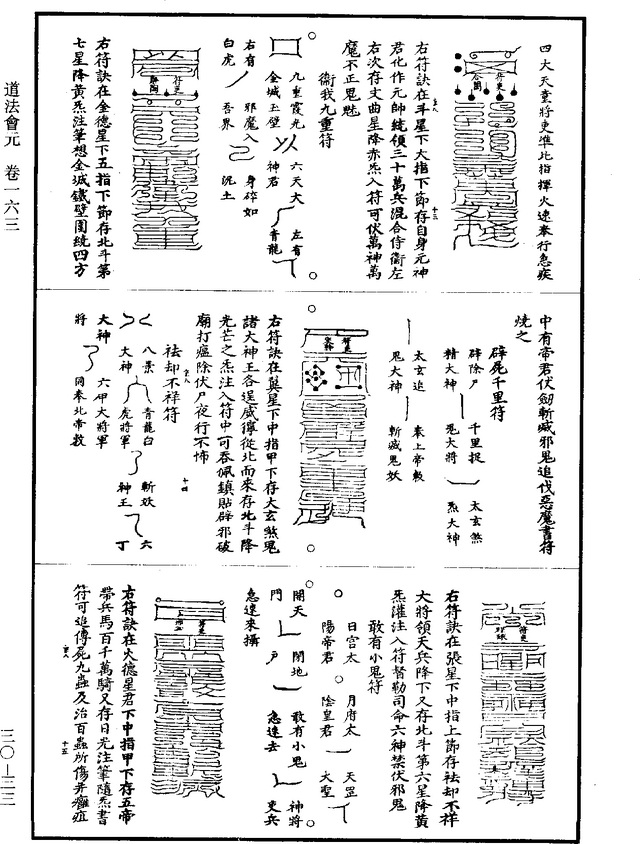 四大天童將吏準此指揮火速奉行急疾
符吏
合同
右符訣在斗星下大指下節存自身元神
君化作元帥統領三十萬兵混合侍衛左
右次存文曲星降赤炁入符可伏萬神萬
魔不正鬼魅
衛我九重符
九重霞光 六天大 左有
金城玉壁 神君 青龍
右有 邪魔入 身碎如
白虎 吾界 泥土
符吏
右符訣在金德星下五指下節存北斗第
七星降黃炁注筆想金城鐵壁圍繞四方
中有帝君伏劒斬滅邪鬼追伐惡魔書符
燒之
辟死千里符
辟除尸 千里捉 太玄煞
精大神 鬼大將 炁大神
太玄追 奉上帝敕
鬼大神 斬滅鬼妖
右符訣在翼星下中指甲下存大玄煞鬼
諸大神王各逞威獰從北而來存北斗降
光芒之炁注入符中可吞佩鎮貼辟邪破
廟打瘟除伏尸夜行不怖
十四
祛却不祥符
八景 青龍白 斬妖 六
大神 虎將軍 神王 丁
大神 六甲大將軍
將 同奉北帝敕
符吏
右符訣在張星下中指上節存祛却不祥
大將領天兵降下又存北斗第六星降黃
炁灌注入符督勒司命六神禁伏邪鬼
敢有小鬼符
日宮太 月府太 天罡
陽帝君 陰皇君 大聖
開天 閉地 敢有小鬼 神將
門 戶 急速去 吏兵
急速來攝
右符訣在火德星君下中指甲下存五帝
帶兵馬百千萬騎又存日光注筆隨炁書
符可追傳屍九蟲及治百蟲所傷并癰疽
十五
道法會元 卷一六三
三〇—二三